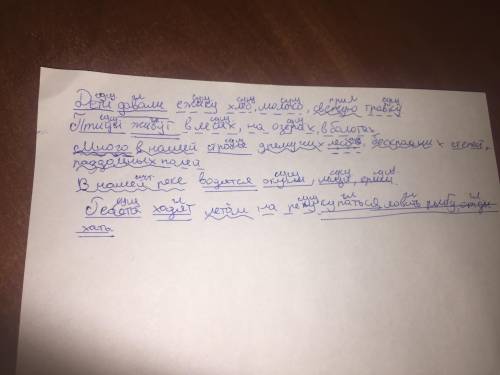 Дети давали ежику хлеб, молоко, свежую травку
Птицы живут в лесах, на озерах, в балотах
Много в нашей стране дремучих лесов, бескрайних степей,
раздольных полей
В нашей реке водятся окуни, ерши.
Ребята ходят летом на реку купаться, ловить рыбу, отды
хать.